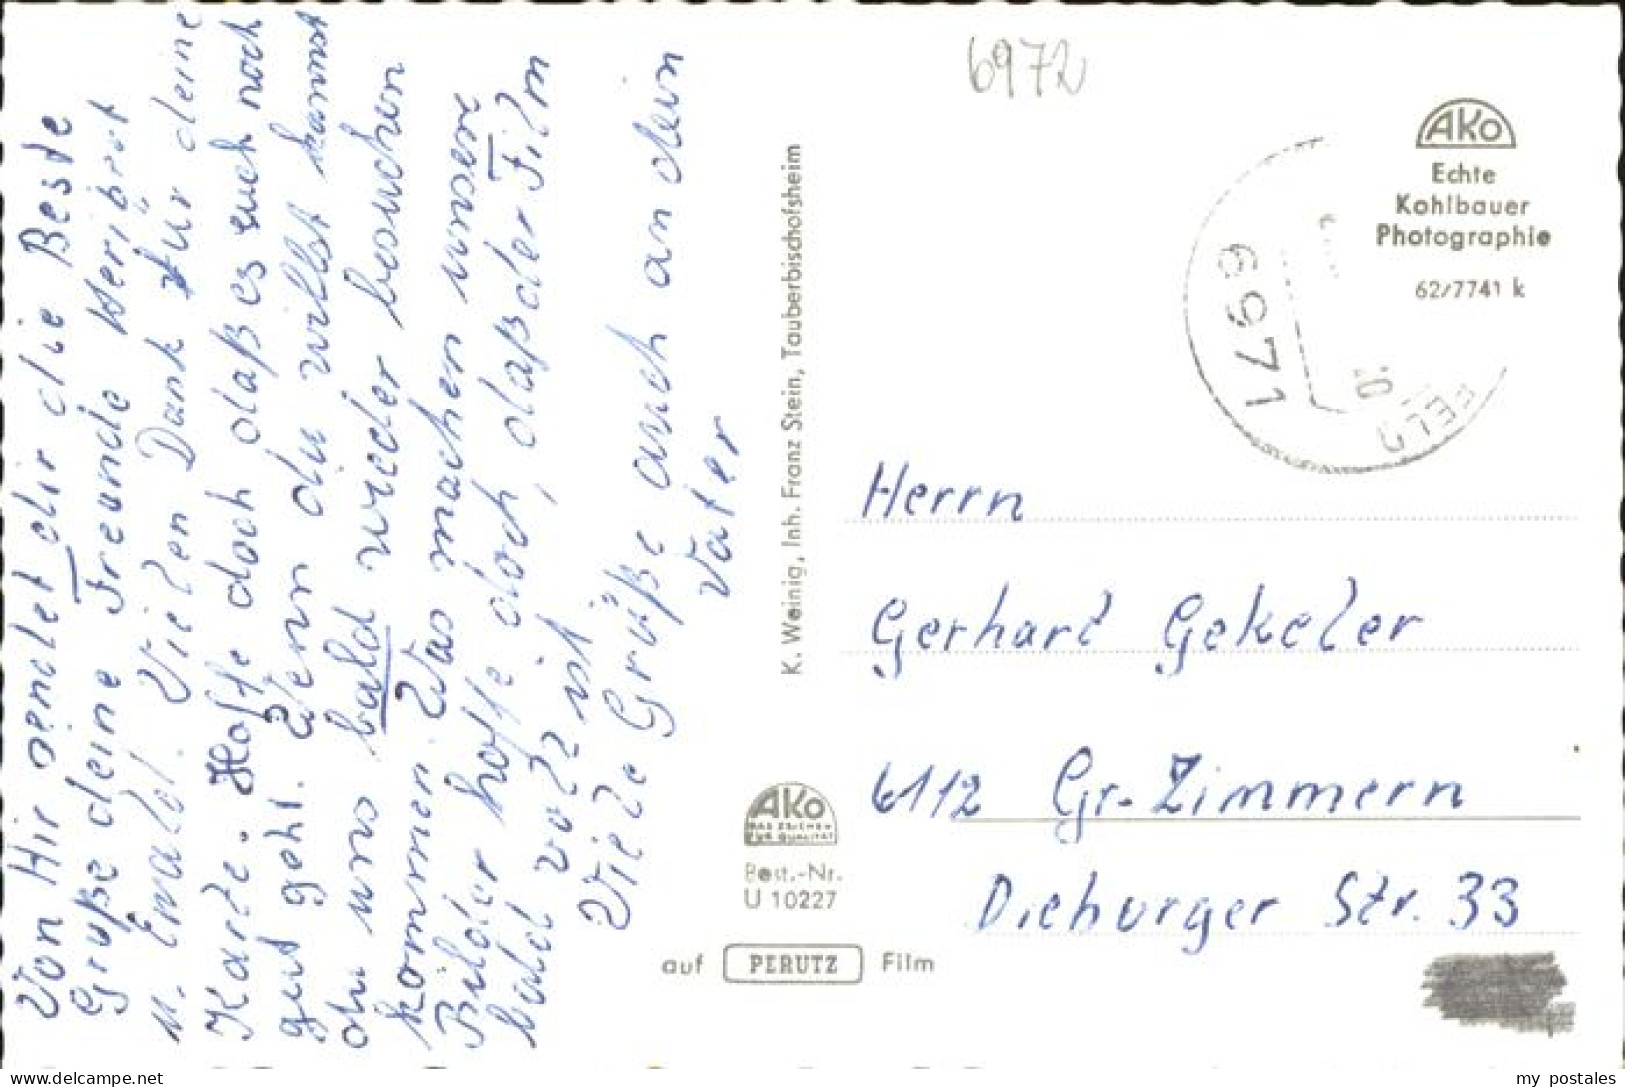 Von Hir sendet dir die Beste
Grüße deine Freunde Heribert
u. Ewald. Vielen Dank für deine
Karte. Hoffe doch daß es euch noch
gut geht. Wenn du willst kannst
du uns bald wieder besuchen
kommen. Was machen unsere
Bilder hoffe doch, daß der Film
bald voll ist
Viele Grüße auch an dein
Vater
K. Weinig, Inh. Franz Stein, Tauberbischofsheim
6972
AKO
Echte
Kohlbauer
Photographie
62/7741 k
6971
FELD
Herrn
Gerhard Gekeler
6112 Gr-Zimmern
Dieburger Str. 33
AKO
DAS ZEICHEN
FÜR QUALITÄT
Best.-Nr.
U 10227
auf PERUTZ Film
my_postales